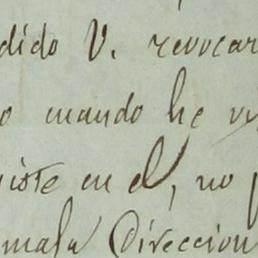 dido V. revocar
o cuando he vi
iste en el, no p
mala Direccion